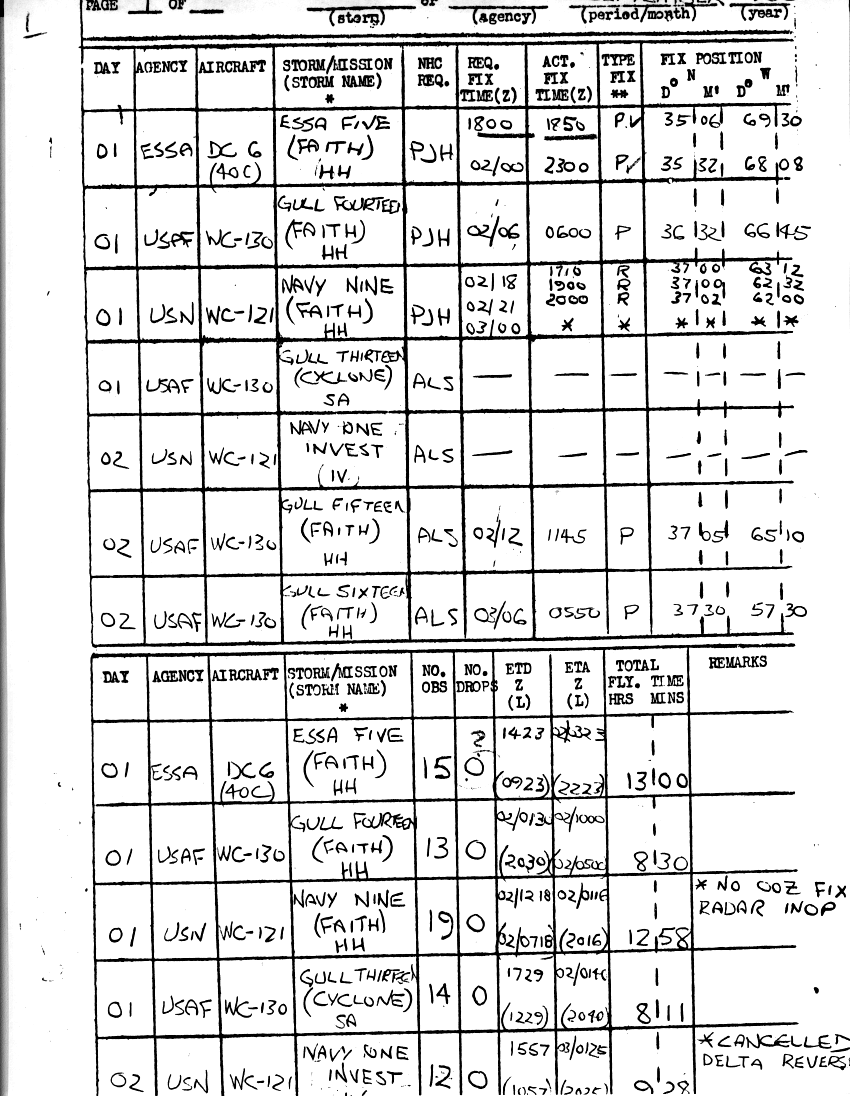 1
PAGE 1 OF
(storm) (agency) (period/month) (year)
DAY AGENCY AIRCRAFT STORM/MISSION (STORM NAME) * NHC REQ. REQ. FIX TIME(Z) ACT. FIX TIME(Z) TYPE FIX ** FIX POSITION D° N M' D° W M'
ESSA FIVE 1800 1850 P✓ 35 06 69 30
01 ESSA DC 6 (FAITH) PJH
(40C) HH 02/00 2300 P✓ 35 32 68 08
GULL FOURTEEN
01 USAF WC-130 (FAITH) PJH 02/06 0600 P 36 32 66 45
HH
1710 R 37 00 63 12
NAVY NINE 02/18 1900 R 37 00 62 32
01 USN WC-121 (FAITH) PJH 02/21 2000 R 37 02 62 00
HH 03/00 * * * * * *
GULL THIRTEEN
01 USAF WC-130 (CYCLONE) ALS — — — — — — —
SA
NAVY ONE
02 USN WC-121 INVEST ALS — — — — — — —
(IV)
GULL FIFTEEN
02 USAF WC-130 (FAITH) ALS 02/12 1145 P 37 05 65 10
HH
GULL SIXTEEN
02 USAF WC-130 (FAITH) ALS 03/06 0550 P 37 30 57 30
HH
DAY AGENCY AIRCRAFT STORM/MISSION (STORM NAME) * NO. OBS NO. DROPS ETD Z (L) ETA Z (L) TOTAL FLY. TIME HRS MINS REMARKS
ESSA FIVE 1423 02/0323
01 ESSA DC6 (FAITH) 15 0
(40C) HH (0923) (2223) 13 00
GULL FOURTEEN 02/0130 02/1000
01 USAF WC-130 (FAITH) 13 0
HH (2030) (02/0500) 8 30
NAVY NINE 02/1218 02/0116 * NO 00Z FIX
01 USN WC-121 (FAITH) 19 0 RADAR INOP
HH 02/0718 (2016) 12 58
GULL THIRTEEN 1729 02/0140
01 USAF WC-130 (CYCLONE) 14 0
SA (1229) (2040) 8 11
NAVY ONE 1557 03/0125 * CANCELLED
02 USN WC-121 INVEST 12 0 DELTA
(1057) (2025) 9 28